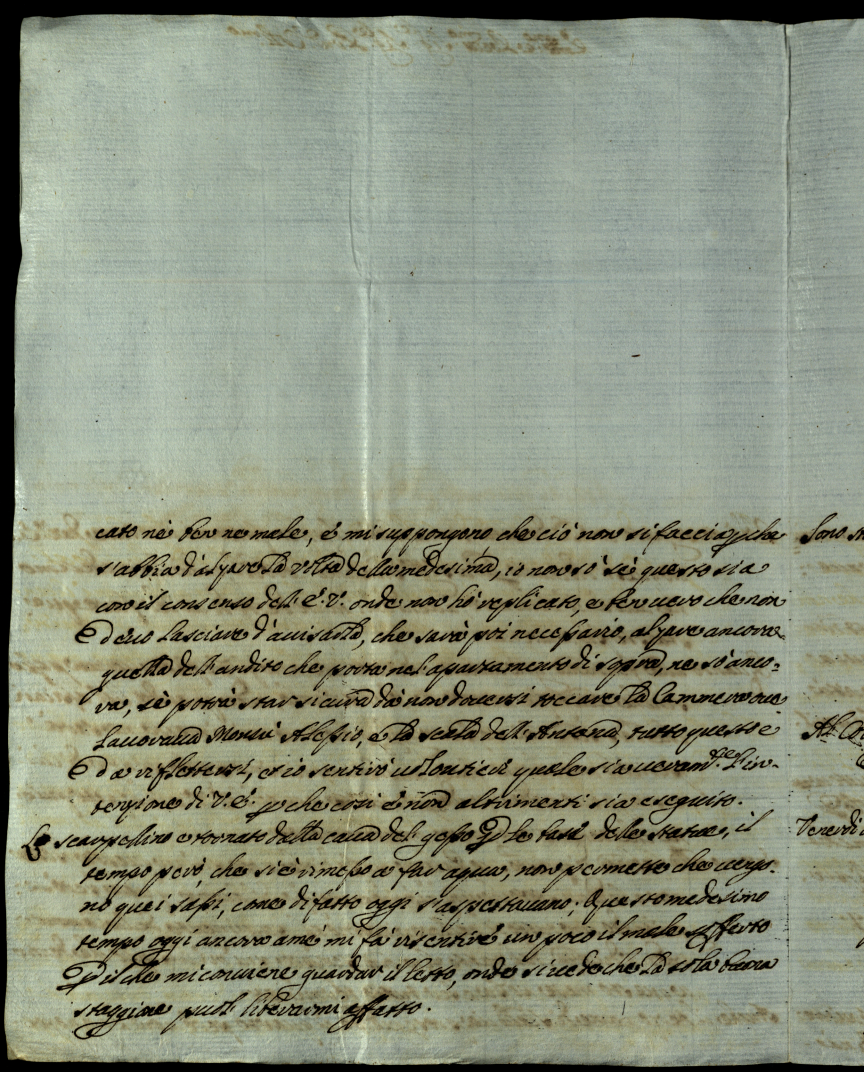 cato nè ben ne male, e mi suppongono che ciò non si faccia perche
s'abbia d'alzare la volta della medesima, io non sò sè questo sia
con il consenso dell' E. V. onde non hò replicato, e ben vero che non
devo lasciare d'avisarla, che sarà poi necessario, alzare ancora
quella dell' andito che porta nel apartamento di sopra, ne sò anco-
ra, sè potrà star sicura da non doversi toccare la Cammera ove
lavorava Monsù Alessio, e la scala dell' Antana, tutto questo e
da riflettersi, et io sentirò volontieri quale sia veramte l'in-
tenzione di V. E. perche così è non altrimenti sia eseguito.
Lo scarpellino e tornato dalla cava del gesso per le basi delle statue, il
tempo però, che si è rimesso a far aqua, non permette che vengo-
no quei sassi, come di fatto oggi s'aspettavano; Questo medesimo
tempo oggi ancora a me mi fa risentire un poco il male sofferto
per il che mi conviene guardar il letto, onde si vede che la sola buona
staggione puol liberarmi affatto.
Sono
Venerdi